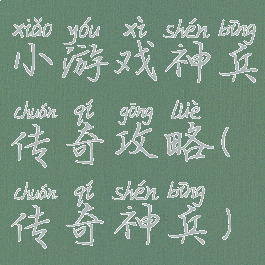 xiǎo yóu xì shén bīng
小游戏神兵
chuán qí gōng lüè
传奇攻略(
chuán qí shén bīng
传奇神兵)